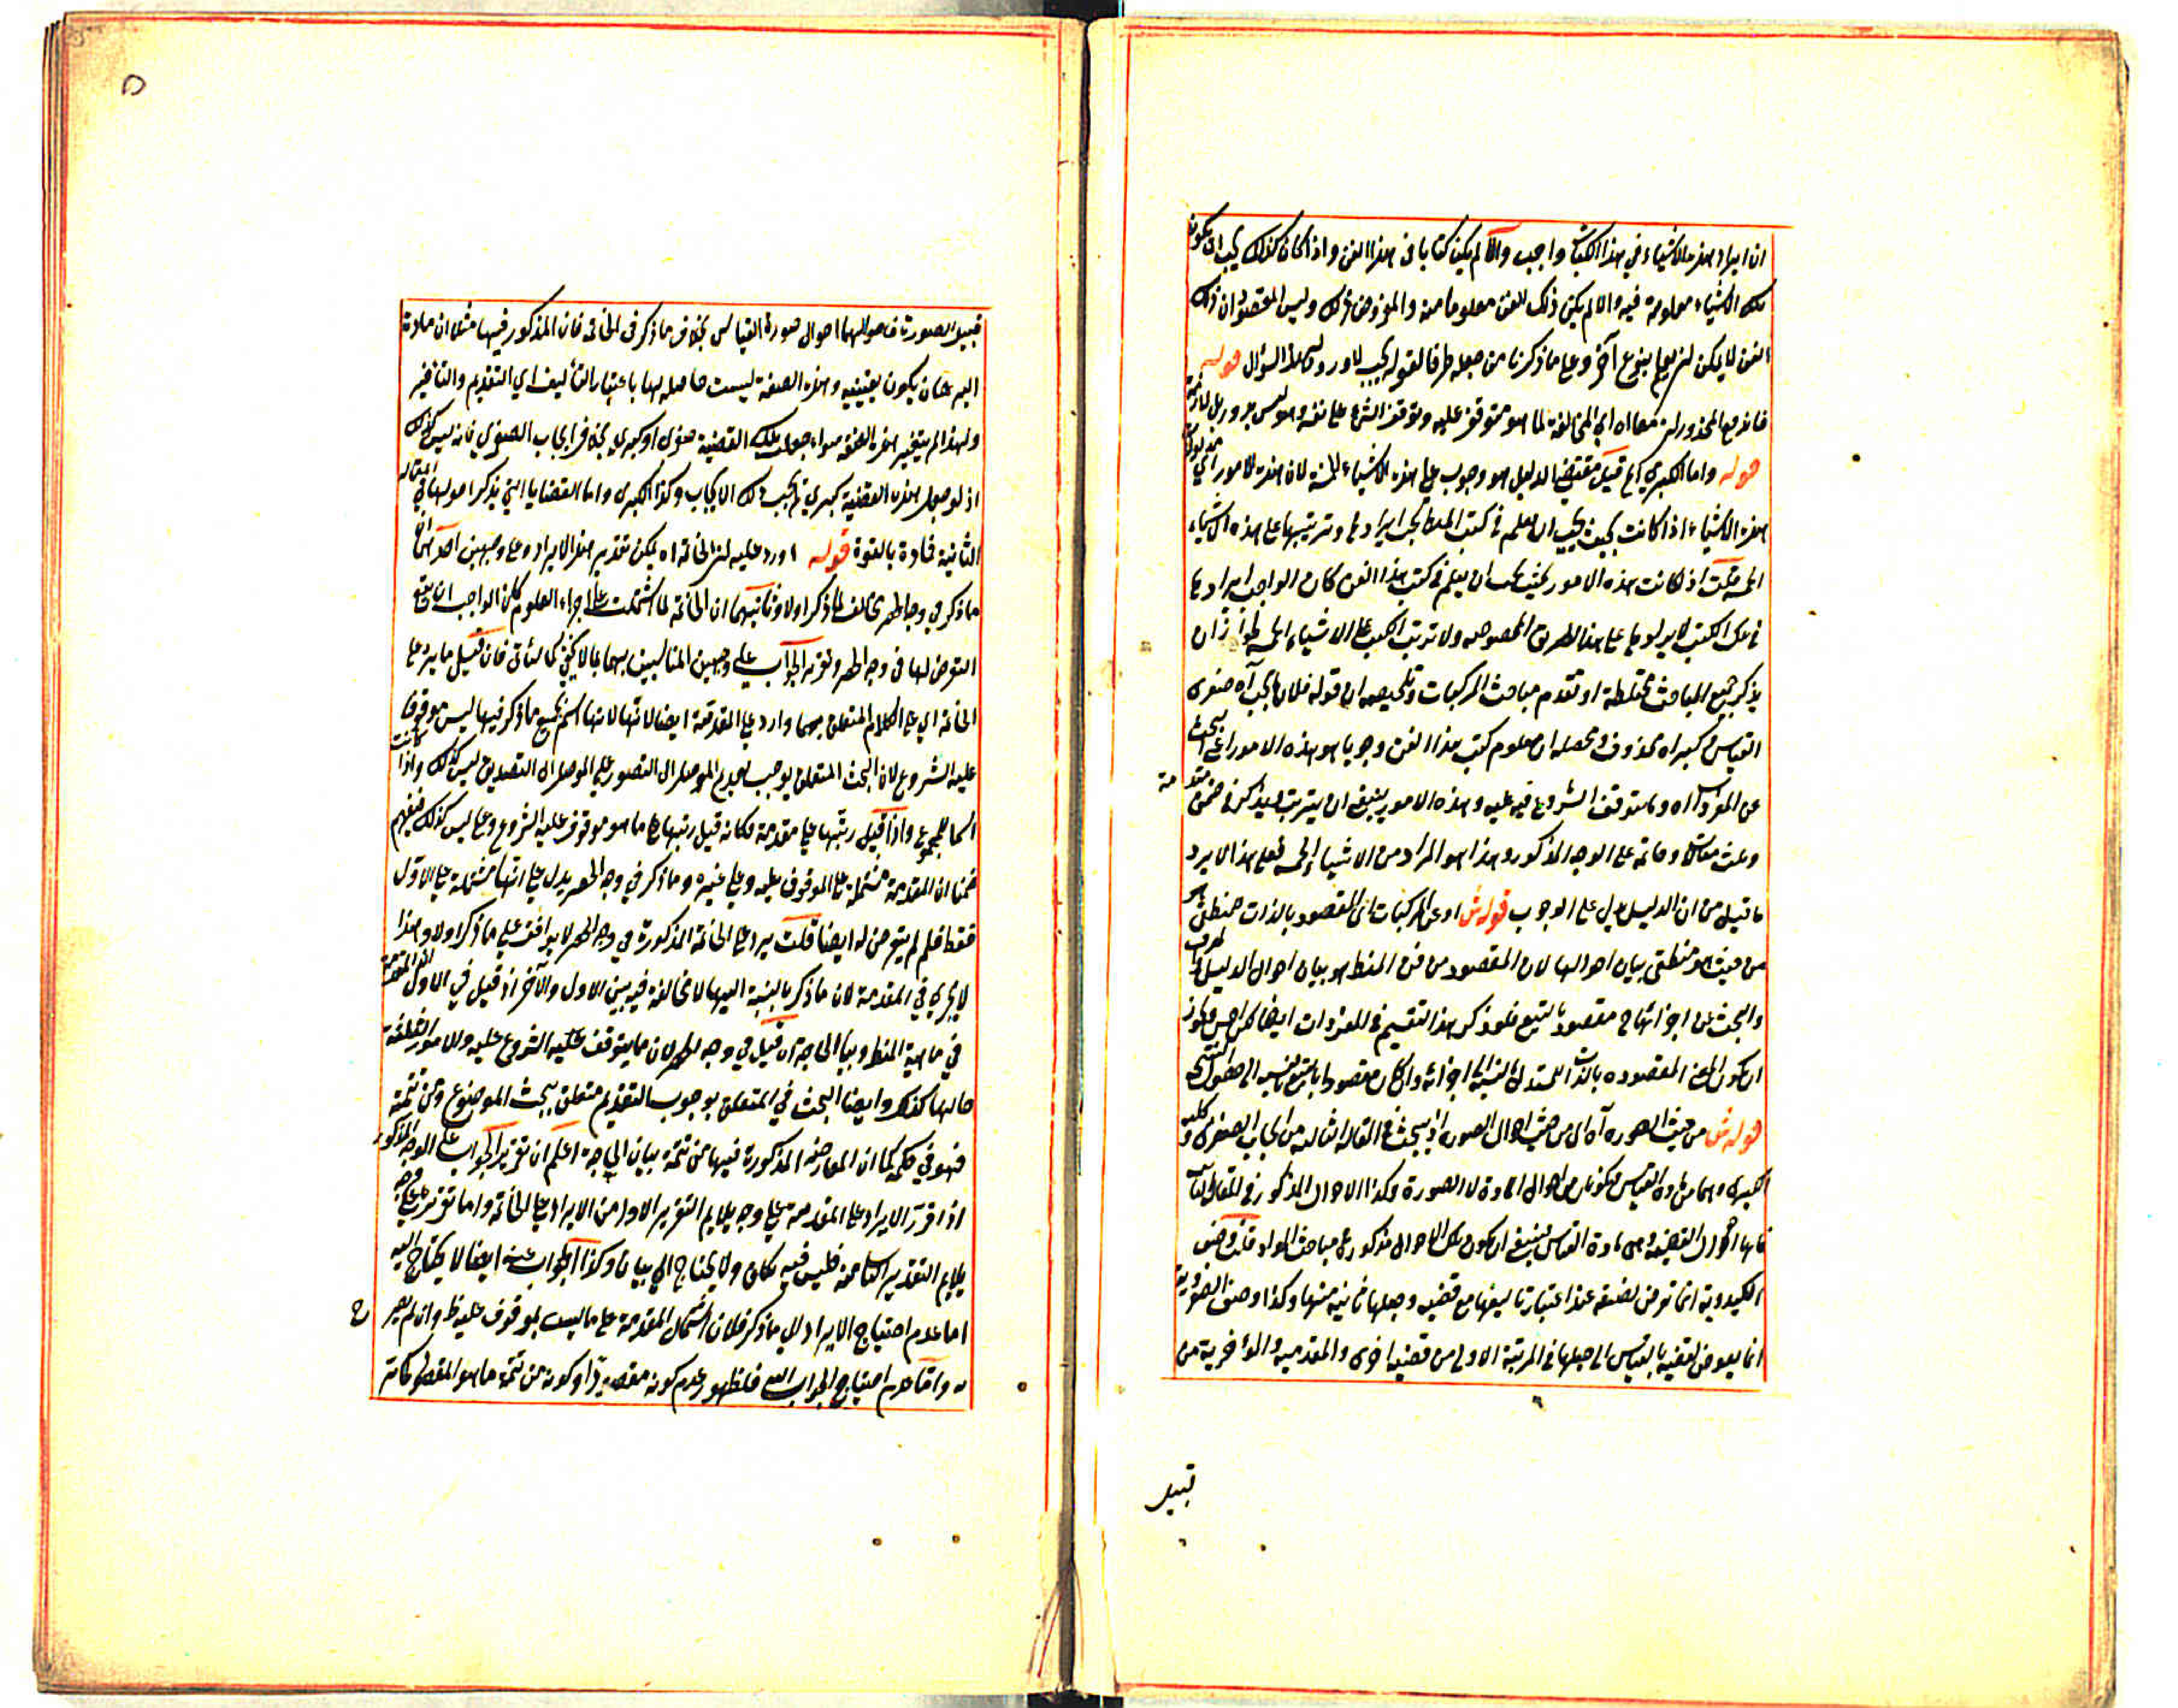 ان ايراد هذه الاشياء في هذا الكتاب واجب والا لم يكن كتابا في هذا الفن واذا كان كذلك يجب ان يكون
تلك الاشياء معلومة فيه والا لم يكن ذلك الفن معلوما منه والمفروض ذلك وليس المقصود ان ذلك
الفن لا يمكن ان يعلم بنوع آخر وعلى ما ذكرنا من جعله ظرفا لقوله يجب لا ورود لهذا السؤال قوله
فاندفع المحذور معناه اي المخالفة لما هو متوقف عليه وتوقف الشيء على نفسه وهو ليس بدور بل
قوله واما الكبرى قيل مقتضى الدليل هو وجوب علم هذه الاشياء الخمسة لان هذه الامور اي
هذه الاشياء اذا كانت بحيث يجب ان يعلم في كتب المنطق يجب ايرادها وترتيبها على هذه الاشياء
الخمسة قلت اذا كانت هذه الامور بحيث يجب ان يعلم في كتب هذا الفن كان الواجب ايرادها
في تلك الكتب لا ايرادها على هذا الطريق المخصوص ولا ترتب الكتب على الاشياء الخمسة لجواز ان
يذكر جميع المباحث مختلطة او تقدم مباحث المركبات وتلخيصه ان قوله فلان ما يجب آه صغرى
القياس وكبراه محذوف ومحصله ان معلوم كتب هذا الفن وجوبا هو هذه الامور اعني البحث
عن المفردات آه وما يتوقف الشروع فيه عليه وهذه الامور ينبغي ان يترتب ويذكر في ضمن مقدمة
وثلث مقالات وخاتمة على الوجه المذكور وهذا هو المراد من الاشياء الخمسة فعلى هذا لا يرد
ما قيل من ان الدليل يدل على الوجوب قوله ش او عن المركبات الى المقصود بالذات منطقي
من حيث هو منطقي بيان احوالها لان المقصود من فن المنطق هو بيان احوال الدليل
والبحث عن اجزائهما مقصود بالتبع فلو ذكر هذا التقسيم في المفردات ايضا كان احسن
ان يكون المعنى المقصوده بالذات للمستدل بالنسبة الى اجزائه وان كان مقصودا بالتبع بالنسبة الى
قوله ش من حيث الصوره آه اي من حيث احوال الصوره اذ يبحث في المقالة الثالثة من ايجاب الصغرى وكلية
الكبرى وهما من مادة القياس فيكونان من احوال المادة لا الصورة وكذا الاحوال المذكور في المقالة
فانها احوال القضية وهي مادة القياس فينبغي ان يكون تلك الاحوال مذكورة في مباحث المواد قلت وصف
الكبروية انما تعرض لقضية عند اعتبار تاليفها مع قضيه وجعلها ثانية منها وكذا وصف الصغروية
انما يعرض لقضية بالقياس الى جعلها في المرتبة الاولى من قضية اخرى والمقدمية والمؤخرية من
قبيل
قبيل الصورة فاحوالهما احوال صورة القياس بخلاف ما ذكر في الخاتمة فان المذكور فيها مثلا ان مادة
البرهان يكون يقينية وهذه الصفة ليست حاصله لها باعتبار التأليف اي التقديم والتأخير
ولهذا لم يتغير هذه الصفة سواء جعلت تلك القضية صغرى او كبرى بخلاف ايجاب الصغرى فانه ليس كذلك
اذ لو جعل هذه القضية كبرى لم يجب ذلك الايجاب وكذا الكبرى واما القضايا التي يذكر احوالها في المقالة
الثانية فمادة بالقوة قوله اورد عليه ان الخاتمة اه يمكن تقرير هذا الايراد على وجهين احدهما ان
ما ذكر في وجه الحصر مخالف لما ذكر اولا وثانيهما ان الخاتمة لما اشتملت على اجزاء العلوم كان الواجب ان يقع
التعرض لها في وجه الحصر وتقرير الجواب على وجهين المناسبين بهما بما لا يخفى كما سيأتي فان قيل ما يرد على
الخاتمة اي على الكلام المتعلق بهما وارد على المقدمة ايضا لانها اسم لجميع ما ذكر فيها ليس موقوفا
عليه الشروع لان البحث المتعلق بوجوب تقديم الموصل الى التصور على الموصل الى التصديق ليس كذلك واذا كانت
اسما للمجموع واذا قيل رتبتها على مقدمة فكانه قيل رتبها على ما هو موقوف عليه الشروع وعلى ليس كذلك فيفهم
ضمنا ان المقدمة مشتملة على الموقوف عليه وعلى غيره وما ذكر في وجه الحصر يدل على انها مشتملة على الاول
فقط فلم لم يتعرض له ايضا قلت يرد على الخاتمة المذكورة في وجه الحصر لا يوافق على ما ذكر اولا وهذا
لا يجري في المقدمة لان ما ذكر بالنسبة اليها لا مخالفة فيه بين الاول والآخر اذ قيل في الاول
في ماهية المنطق وبيان الحاجة ان قيل في وجه الحصر لان ما يتوقف عليه الشروع عليه والامور
حالها كذلك وايضا البحث في المتعلق بوجوب التقديم متعلق ببحث الموضوع ومن تتمته
فهو في حكمه كما ان المعارضة المذكورة فيها من تتمة بيان الحاجة اعلم ان تقرير الجواب على الوجه المذكور
اذا قرر الايراد على المقدمة على وجه يلايم التقرير الاول من الايراد على الخاتمة واما تقريره على وجه
يلايم التقدير الثاني منه فليس فيه مكان ولا يحتاج الى بيان وكذا الجواب عنه ايضا لا يحتاج اليه
اما عدم احتياج الايراد الى ما ذكر فلان اشتمال المقدمة على ما ليس بموقوف عليه ظ وان لم يصر
واما عدم احتياج الجواب اليه فلظهور عدم كونه مقصودا او كونه من تتمة ما هو المقصود